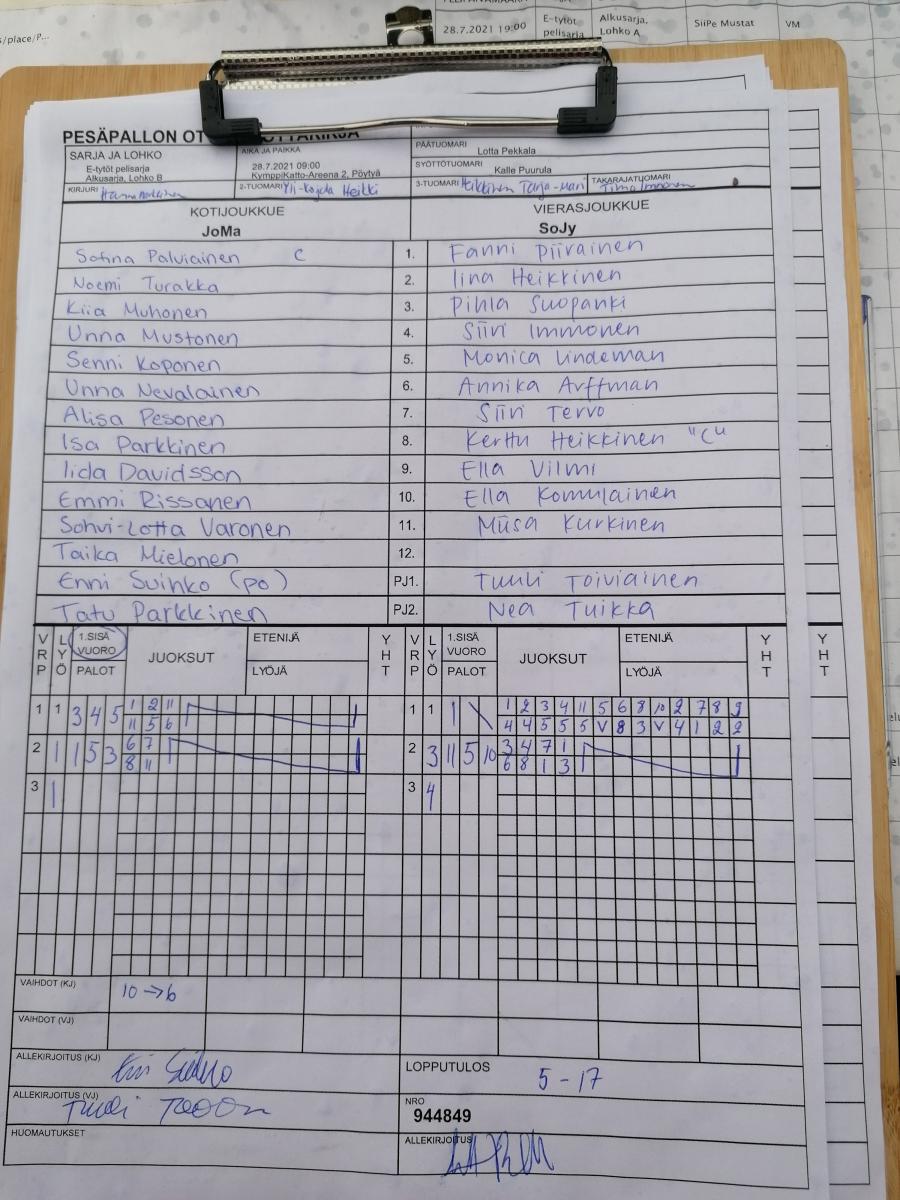 s/place/P...
28.7.2021 19:00 E-tytöt pelisarja Alkusarja, Lohko A SiiPe Mustat VM
PESÄPALLON OT
SARJA JA LOHKO
E-tytöt pelisarja
Alkusarja, Lohko B
AIKA JA PAIKKA
28.7.2021 09:00
KymppiKatto-Areena 2, Pöytyä
PÄÄTUOMARI
Lotta Pekkala
SYÖTTÖTUOMARI
Kalle Puurula
KIRJURI
2-TUOMARI Yli-Kojola Heikki
3-TUOMARI Heikkinen Tarja-Mari
TAKARAJATUOMARI
Timo Immonen
KOTIJOUKKUE
JoMa
VIERASJOUKKUE
SoJy
Sofina Palviainen C 1. Fanni Piirainen
Noemi Turakka 2. Iina Heikkinen
Kiia Muhonen 3. Pihla Suopanki
Unna Mustonen 4. Siiri Immonen
Senni Koponen 5. Monica Lindeman
Unna Nevalainen 6. Annika Arffman
Alisa Pesonen 7. Siiri Tervo
Isa Parkkinen 8. Kerttu Heikkinen "C"
Iida Davidsson 9. Ella Vilmi
Emmi Rissanen 10. Ella Komulainen
Sohvi-Lotta Varonen 11. Miisa Kurkinen
Taika Mielonen 12.
Enni Suihko (PO) PJ1. Tuuli Toiviainen
Tatu Parkkinen PJ2. Nea Tuikka
VRP LYÖ 1.SISÄ VUORO PALOT JUOKSUT ETENIJÄ LYÖJÄ YHT VRP LYÖ 1.SISÄ VUORO PALOT JUOKSUT ETENIJÄ LYÖJÄ YHT YHT
1 1 3 4 5 1 2 11 1 1 1 1 2 3 4 11 5 6 8 10 2 7 8 9
11 5 6 4 4 5 5 5 V 8 3 V 4 1 2 2
2 1 1 5 3 6 7 2 3 11 5 10 3 4 7 1
8 11 6 8 1 3
3 1 3 4
VAIHDOT (KJ) 10→6
VAIHDOT (VJ)
ALLEKIRJOITUS (KJ)
LOPPUTULOS 5-17
ALLEKIRJOITUS (VJ)
NRO
944849
HUOMAUTUKSET
ALLEKIRJOITUS